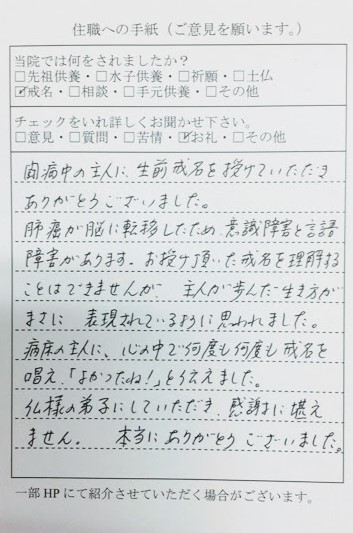 住職への手紙(ご意見を願います。)
当院では何をされましたか?
□先祖供養・□水子供養・□祈願・□土仏
☑戒名・□相談・□手元供養・□その他
チェックをいれ詳しくお聞かせ下さい。
□意見・□質問・□苦情・☑お礼・□その他
闘病中の主人に、生前戒名を授けていただき
ありがとうございました。
肺癌が脳に転移したため、意識障害と言語
障害があります。お授け頂いた戒名を理解する
ことはできませんが、主人が歩んだ生き方が
まさに表現されているように思われました。
病床の主人に、心の中で何度も何度も戒名を
唱え、「よかったね!」と伝えました。
仏様の弟子にしていただき、感謝に堪え
ません。 本当にありがとうございました。
一部HPにて紹介させていただく場合がございます。